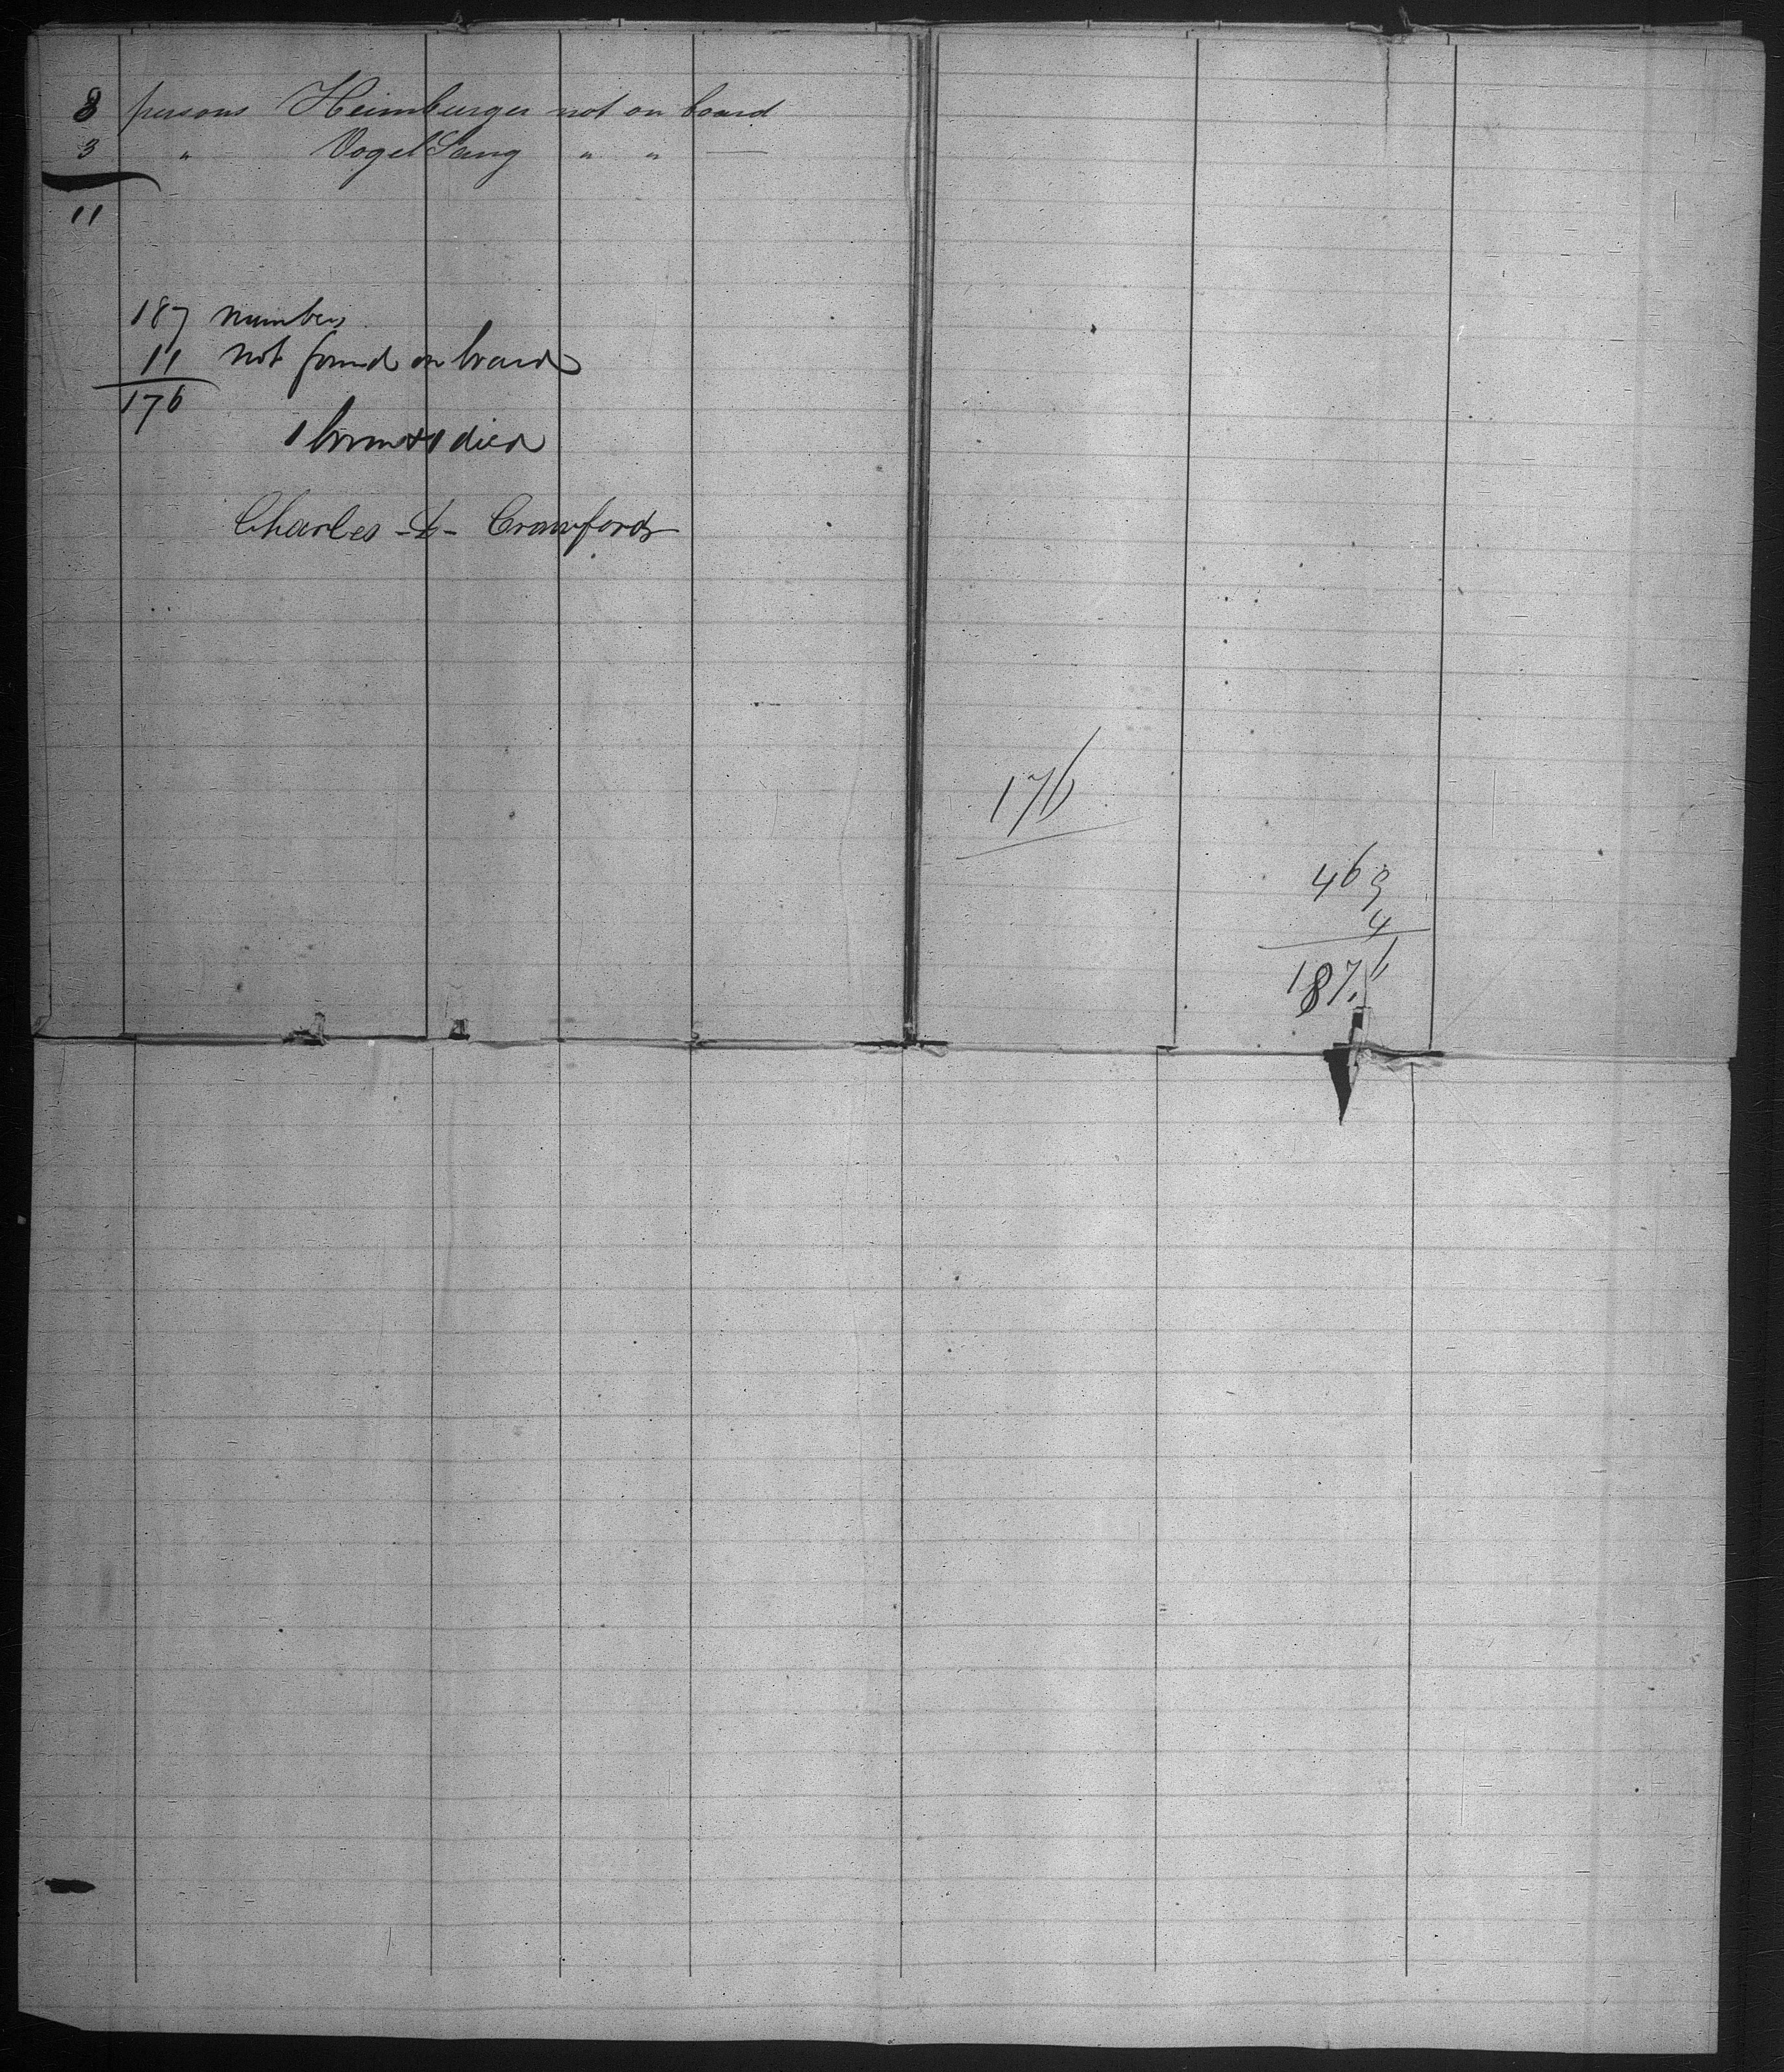 8 persons Heimburger not on board
3 " VogelSang " " —
11
187 numbers
11 not found on board
176
1 born + 1 died
Charles Crawford
176
469
4
1876